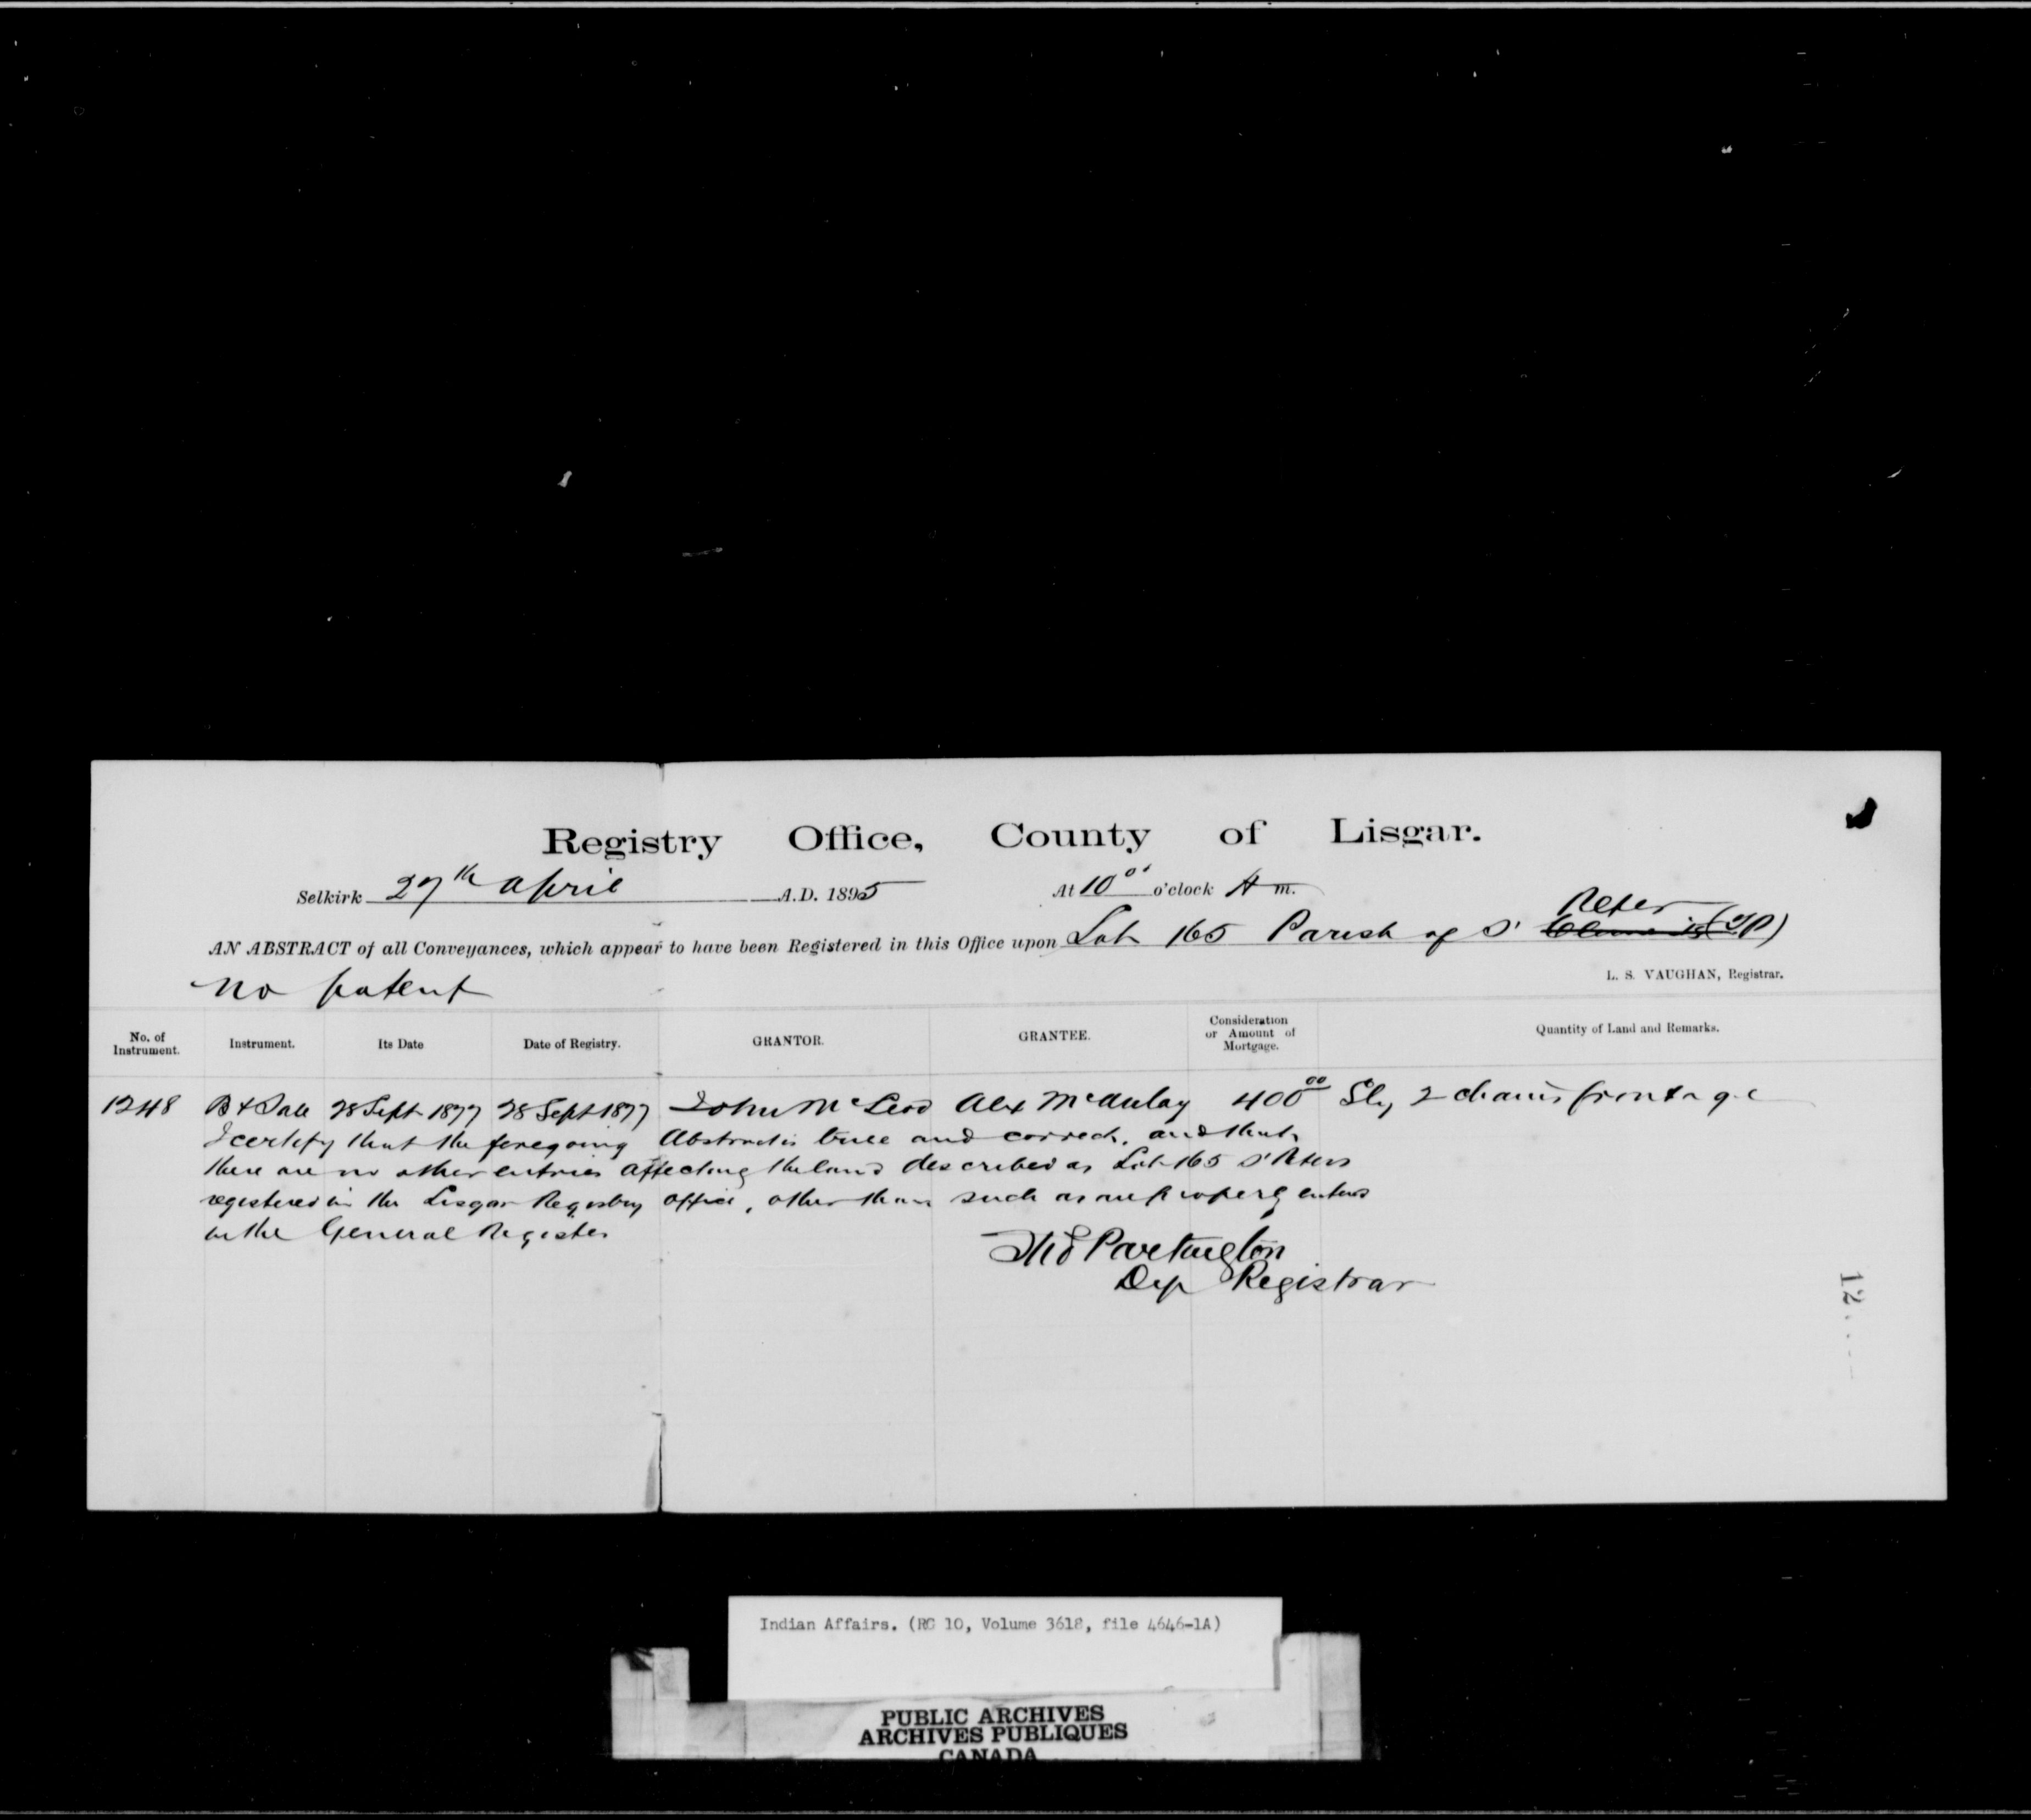 Registry Office, County of Lisgar.
Selkirk 27th April A.D. 1895 At 10 00 o'clock A m.
Peter
AN ABSTRACT of all Conveyances, which appear to have been Registered in this Office upon Lot 165 Parish of St
L. S. VAUGHAN, Registrar.
No patent
No. of Instrument. Instrument. Its Date Date of Registry. GRANTOR. GRANTEE. Consideration or Amount of Mortgage. Quantity of Land and Remarks.
1248 B & Sale 28 Sept 1877 28 Sept 1877 John McLeod Alex McAulay 400 00 Sly 2 chains frontage
I certify that the foregoing Abstract is true and correct, and that
there are no other entries affecting the land described as Lot 165 St Peters
registered in the Lisgar Registry office, other than such as are properly entered
in the General Register
Thos Partington
Dep Registrar
12
Indian Affairs. (RG 10, Volume 3618, file 4646-1A)
PUBLIC ARCHIVES
ARCHIVES PUBLIQUES
CANADA